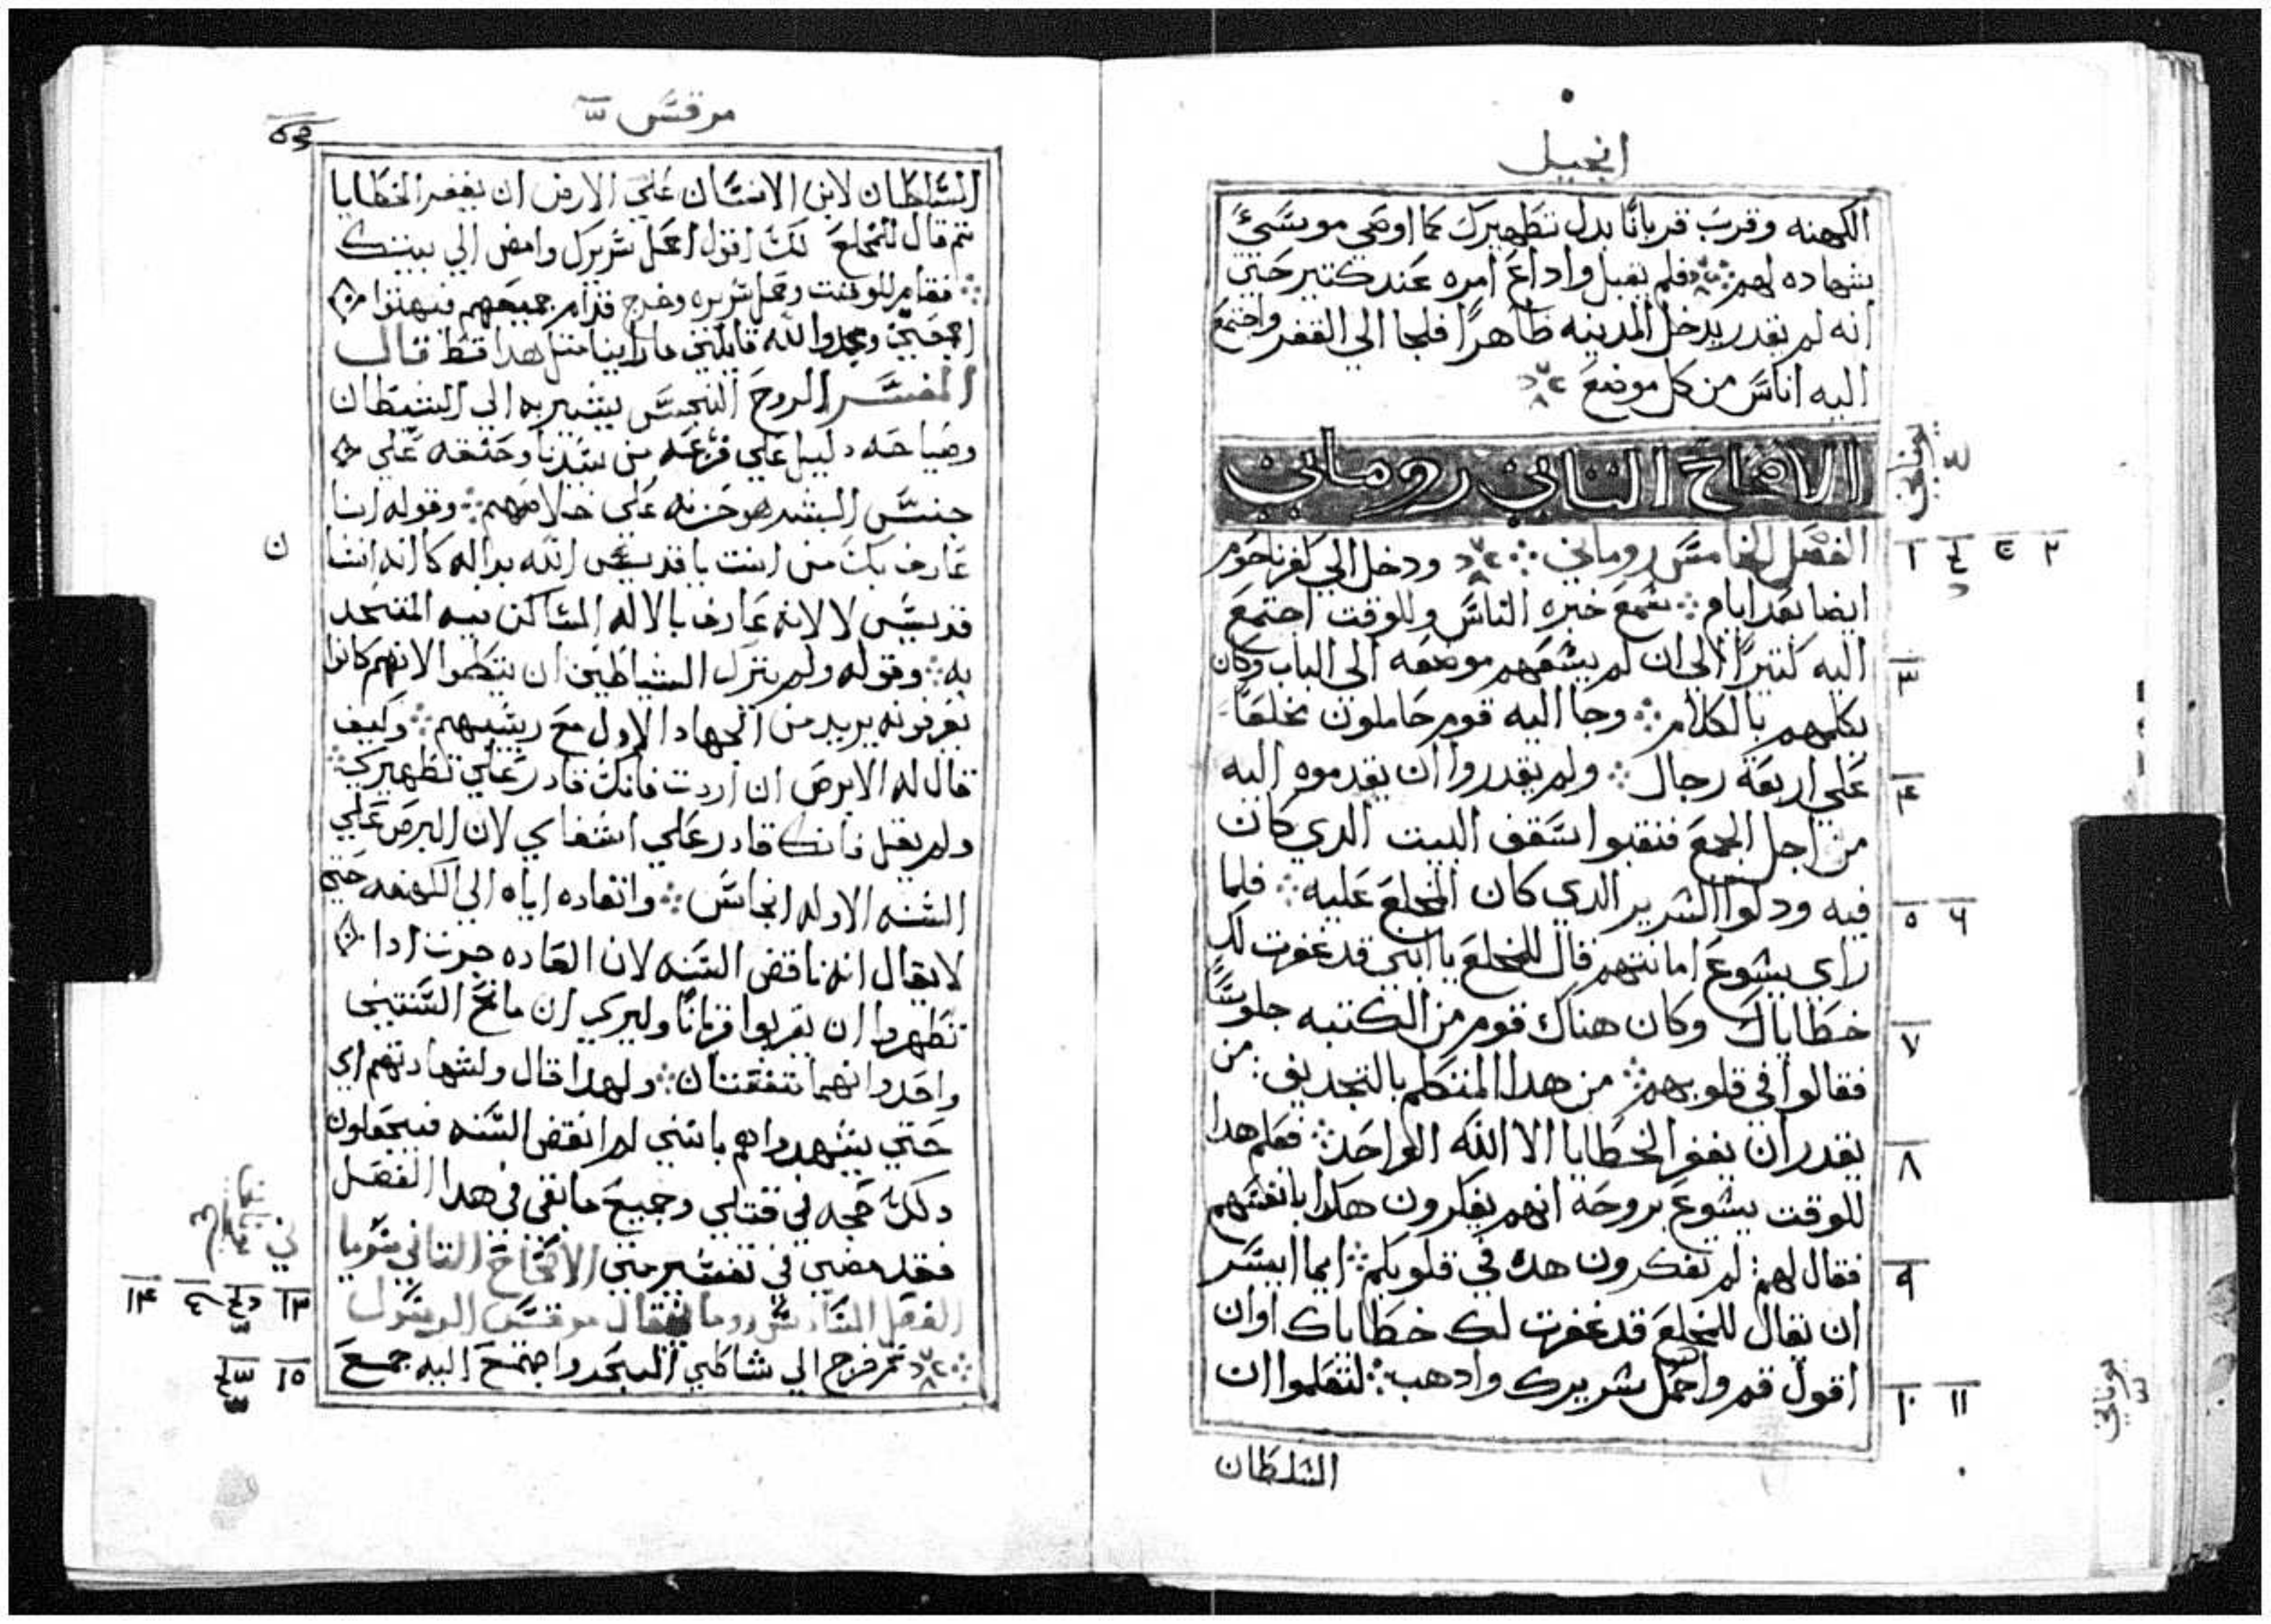 انجيل
الكهنه وقرب قربانًا بدل تطهيرك كما اوصي موسي
شهاده لهم فلم يقبل واداع امره عند كثير حتي
انه لم يقدر يدخل المدينه ظاهرًا فلجا الي القفر واجتمع
اليه اناس من كل موضع
الاصحاح الثاني روماني
يوناني
الفصل الخامس روماني ودخل الي كفرناحوم
١ ٢
ايضا بعد ايام سمع خبره الناس وللوقت اجتمع
اليه كتيرًا الي ان لم يسعهم موضعه الي الباب وكان
٣
يكلمهم بالكلام وجا اليه قوم حاملون مخلعًا
علي اربعة رجال ولم يقدروا ان يقدموه اليه
٤
من اجل الجمع فنقبوا سقف البيت الدي كان
فيه ودلوا السرير الدي كان المخلع عليه فلما
٥ ٦
راي يسوع امانتهم قال للمخلع يا ابني قد غفرت لك
خطاياك وكان هناك قوم من الكتبه جلوسًا
٧
فقالوا في قلوبهم من هدا المتكلم بالتجديف من
يقدر ان يغفر الخطايا الا الله الواحد فعلم هدا
٨
للوقت يسوع بروحه انهم يفكرون هكدا بانفسهم
فقال لهم لم تفكرون هده في قلوبكم ايما ايسر
٩
ان يقال للمخلع قد غفرت لك خطاياك او ان
اقول قم واحمل سريرك وادهب لتعلموا ان
١٠ ١١
يوناني
السلطان
مرقس
السلطان لابن الانسان علي الارض ان يغفر الخطايا
تم قال للمخلع لك اقول احمل سريرك وامض الي بيتك
فقام للوقت وحمل سريره وخرج قدام جميعهم فبهتوا
اجمعين ومجدوا الله قايلين ما راينا متل هدا قط قال
المفسر الروح النجس يشير به الي الشيطان
وصياحه دليل علي فزعه من سيدنا وحنقه علي
جنس البشر هو حزنه علي خلاصهم وقوله انا
ن
عارف بك من انت يا قديس الله يراله كانه انسا
قديس لا لانه عارف بالاله الساكن فيه المتحد
به وقوله ولم يترك الشياطين ان ينطقوا لانهم كانوا
يعرفونه يريد من الجهاد الاول مع ريسهم وكيف
قال له الابرص ان اردت فانك قادر علي تطهيرك
ولم يقل فانك قادر علي اشفاي لان البرص علي
السنه الاوله انجاس وانفاده اياه الي الكهنه حتي
لا يقال انه ناقض السنه لان العاده جرت ادا
تطهروا ان يقربوا قربانًا وليري ان مانح السنتين
واحد وانهما تتفقتان ولهدا قال ولشهادتهم اي
حتي يشهدوا لهم بانني لم انقض السنه فيجعلون
دلك حجه في قتلي وجميع ما بقي في هدا الفصل
فقد مضي في تفسير متي الاصحاح التاني
الفصل السادس روماني قال مرقس الرسول
١٣ ١٤
تم خرج الي شاطي البحر واجتمع اليه جمع
١٥